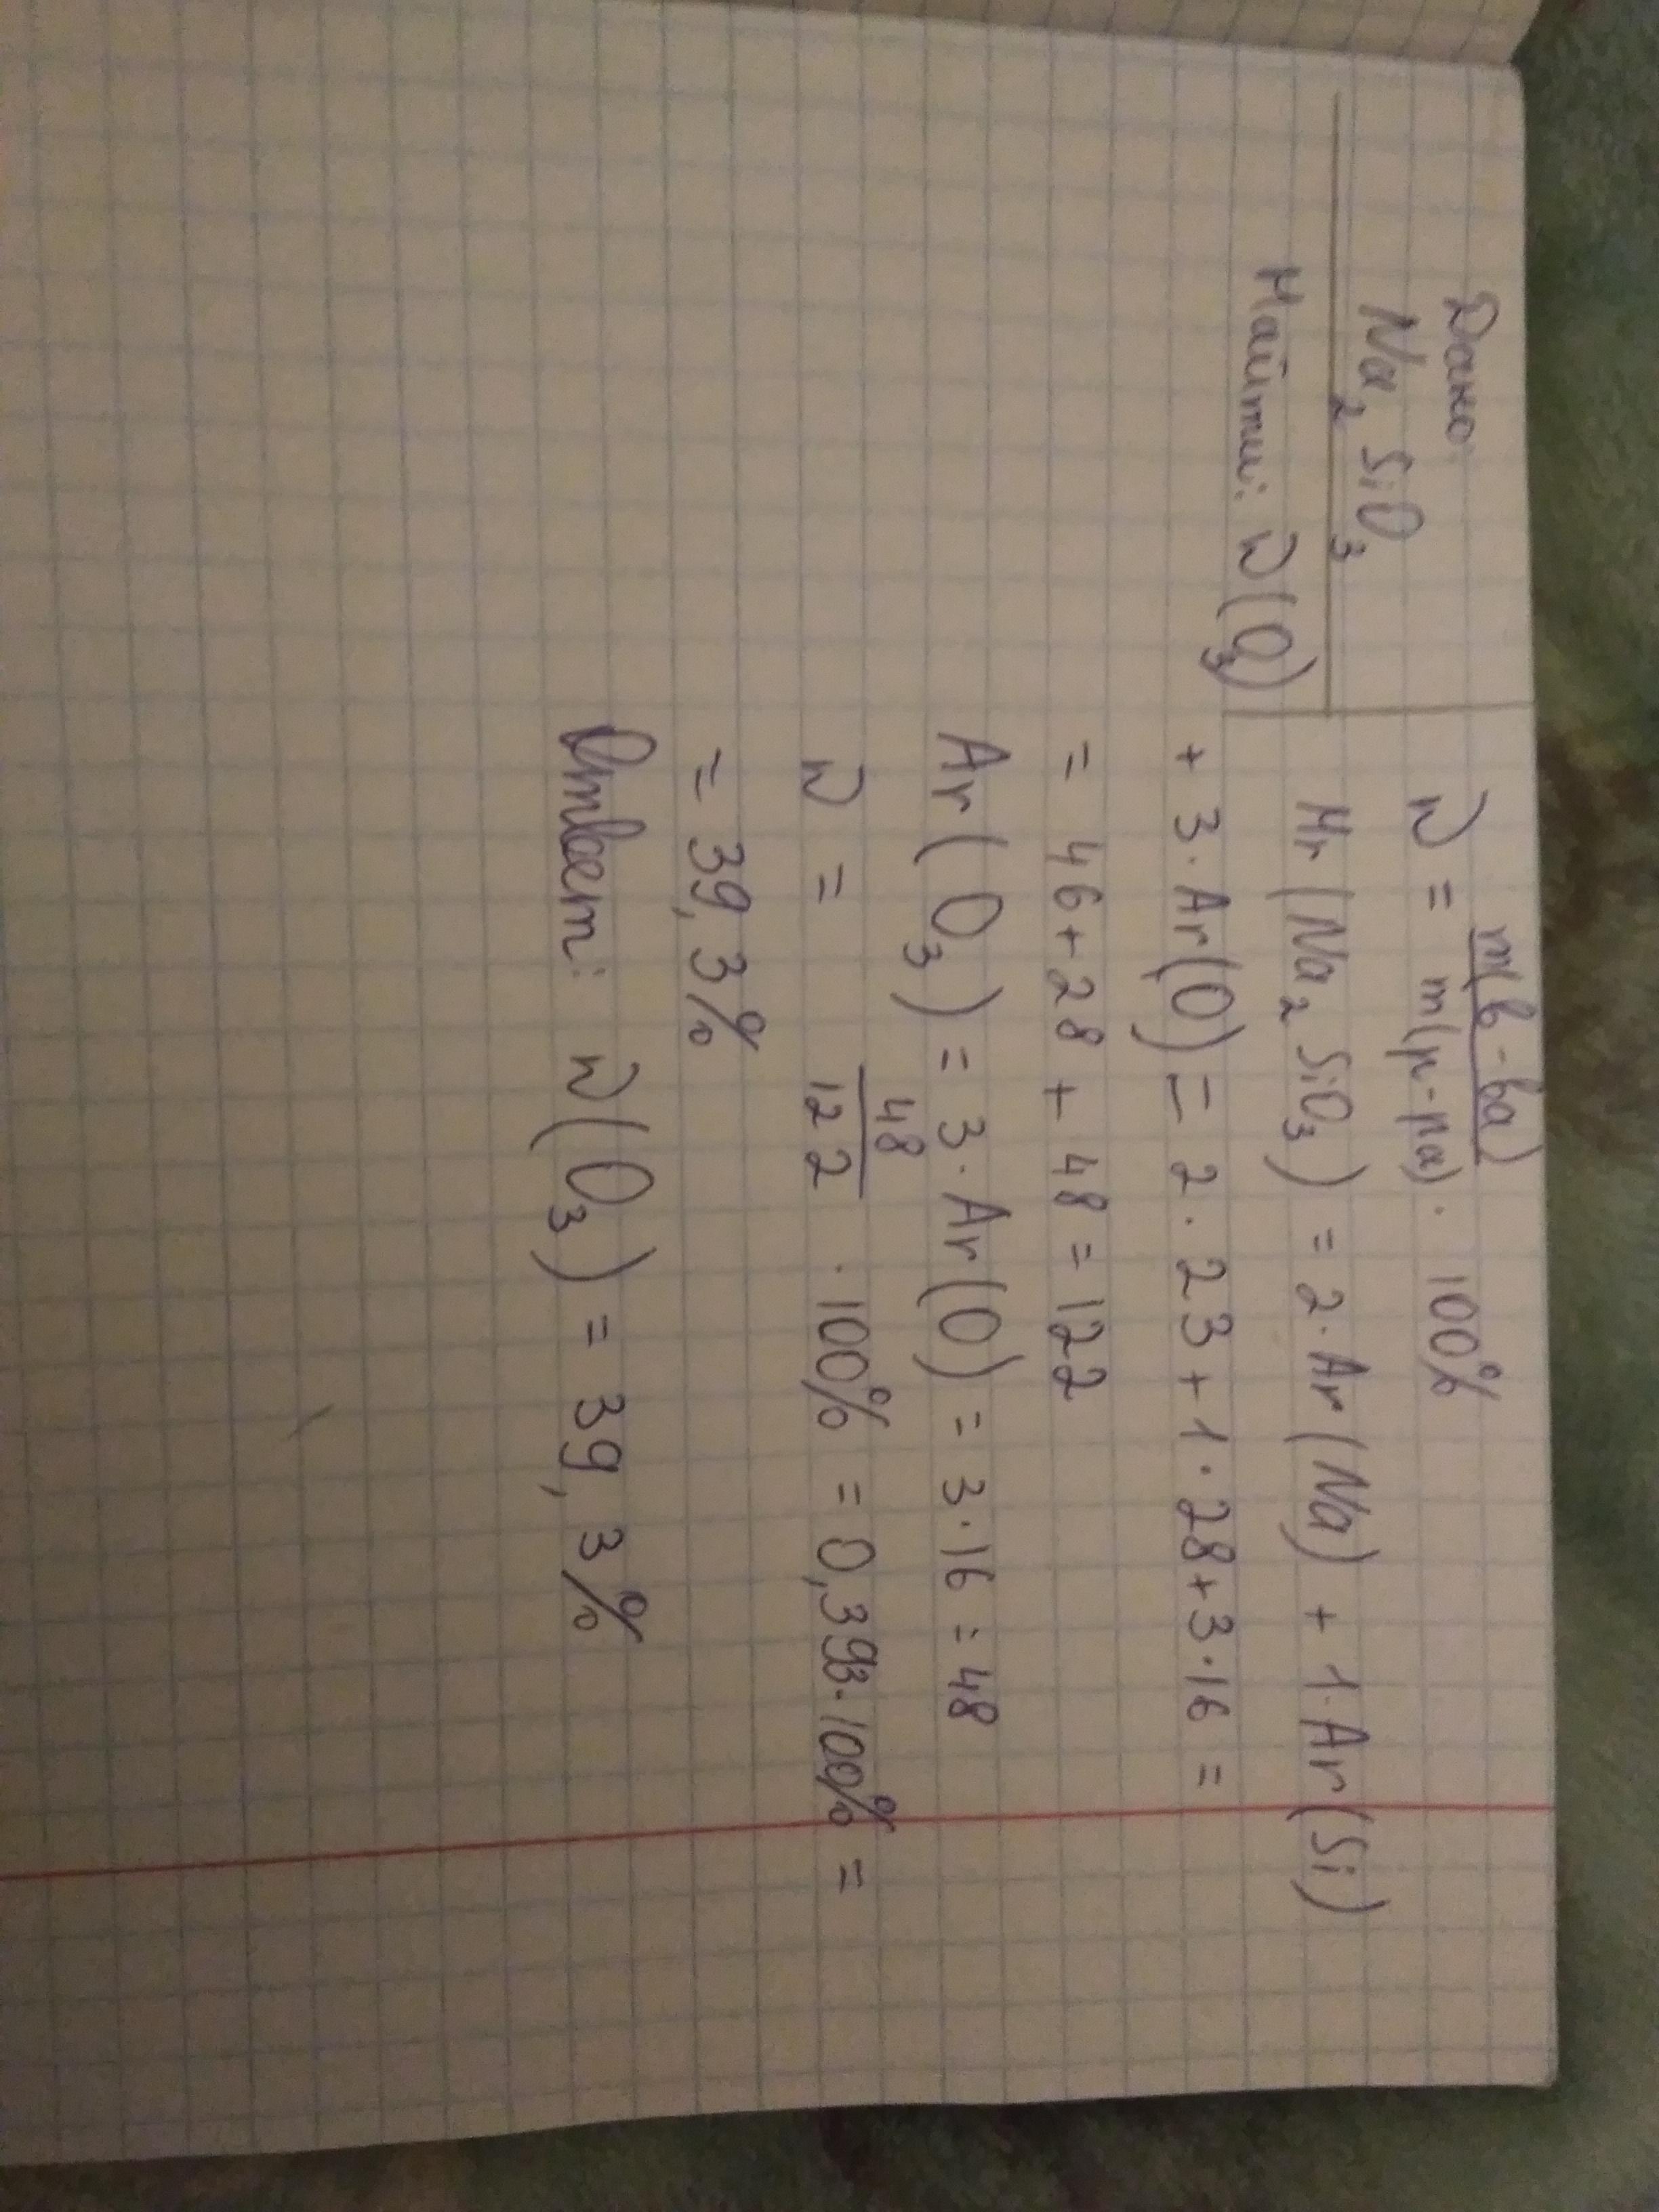 Дано:
Na₂SiO₃
Найти: W(O₃)
W = m(в-ва)/m(р-ра) · 100%
Mr(Na₂SiO₃) = 2·Ar(Na) + 1·Ar(Si)
+ 3·Ar(O) = 2·23+1·28+3·16 =
= 46+28+48=122
Ar(O₃) = 3·Ar(O) = 3·16=48
W = 48/122 · 100% = 0,393·100% =
= 39,3%
Ответ: W(O₃) = 39,3%